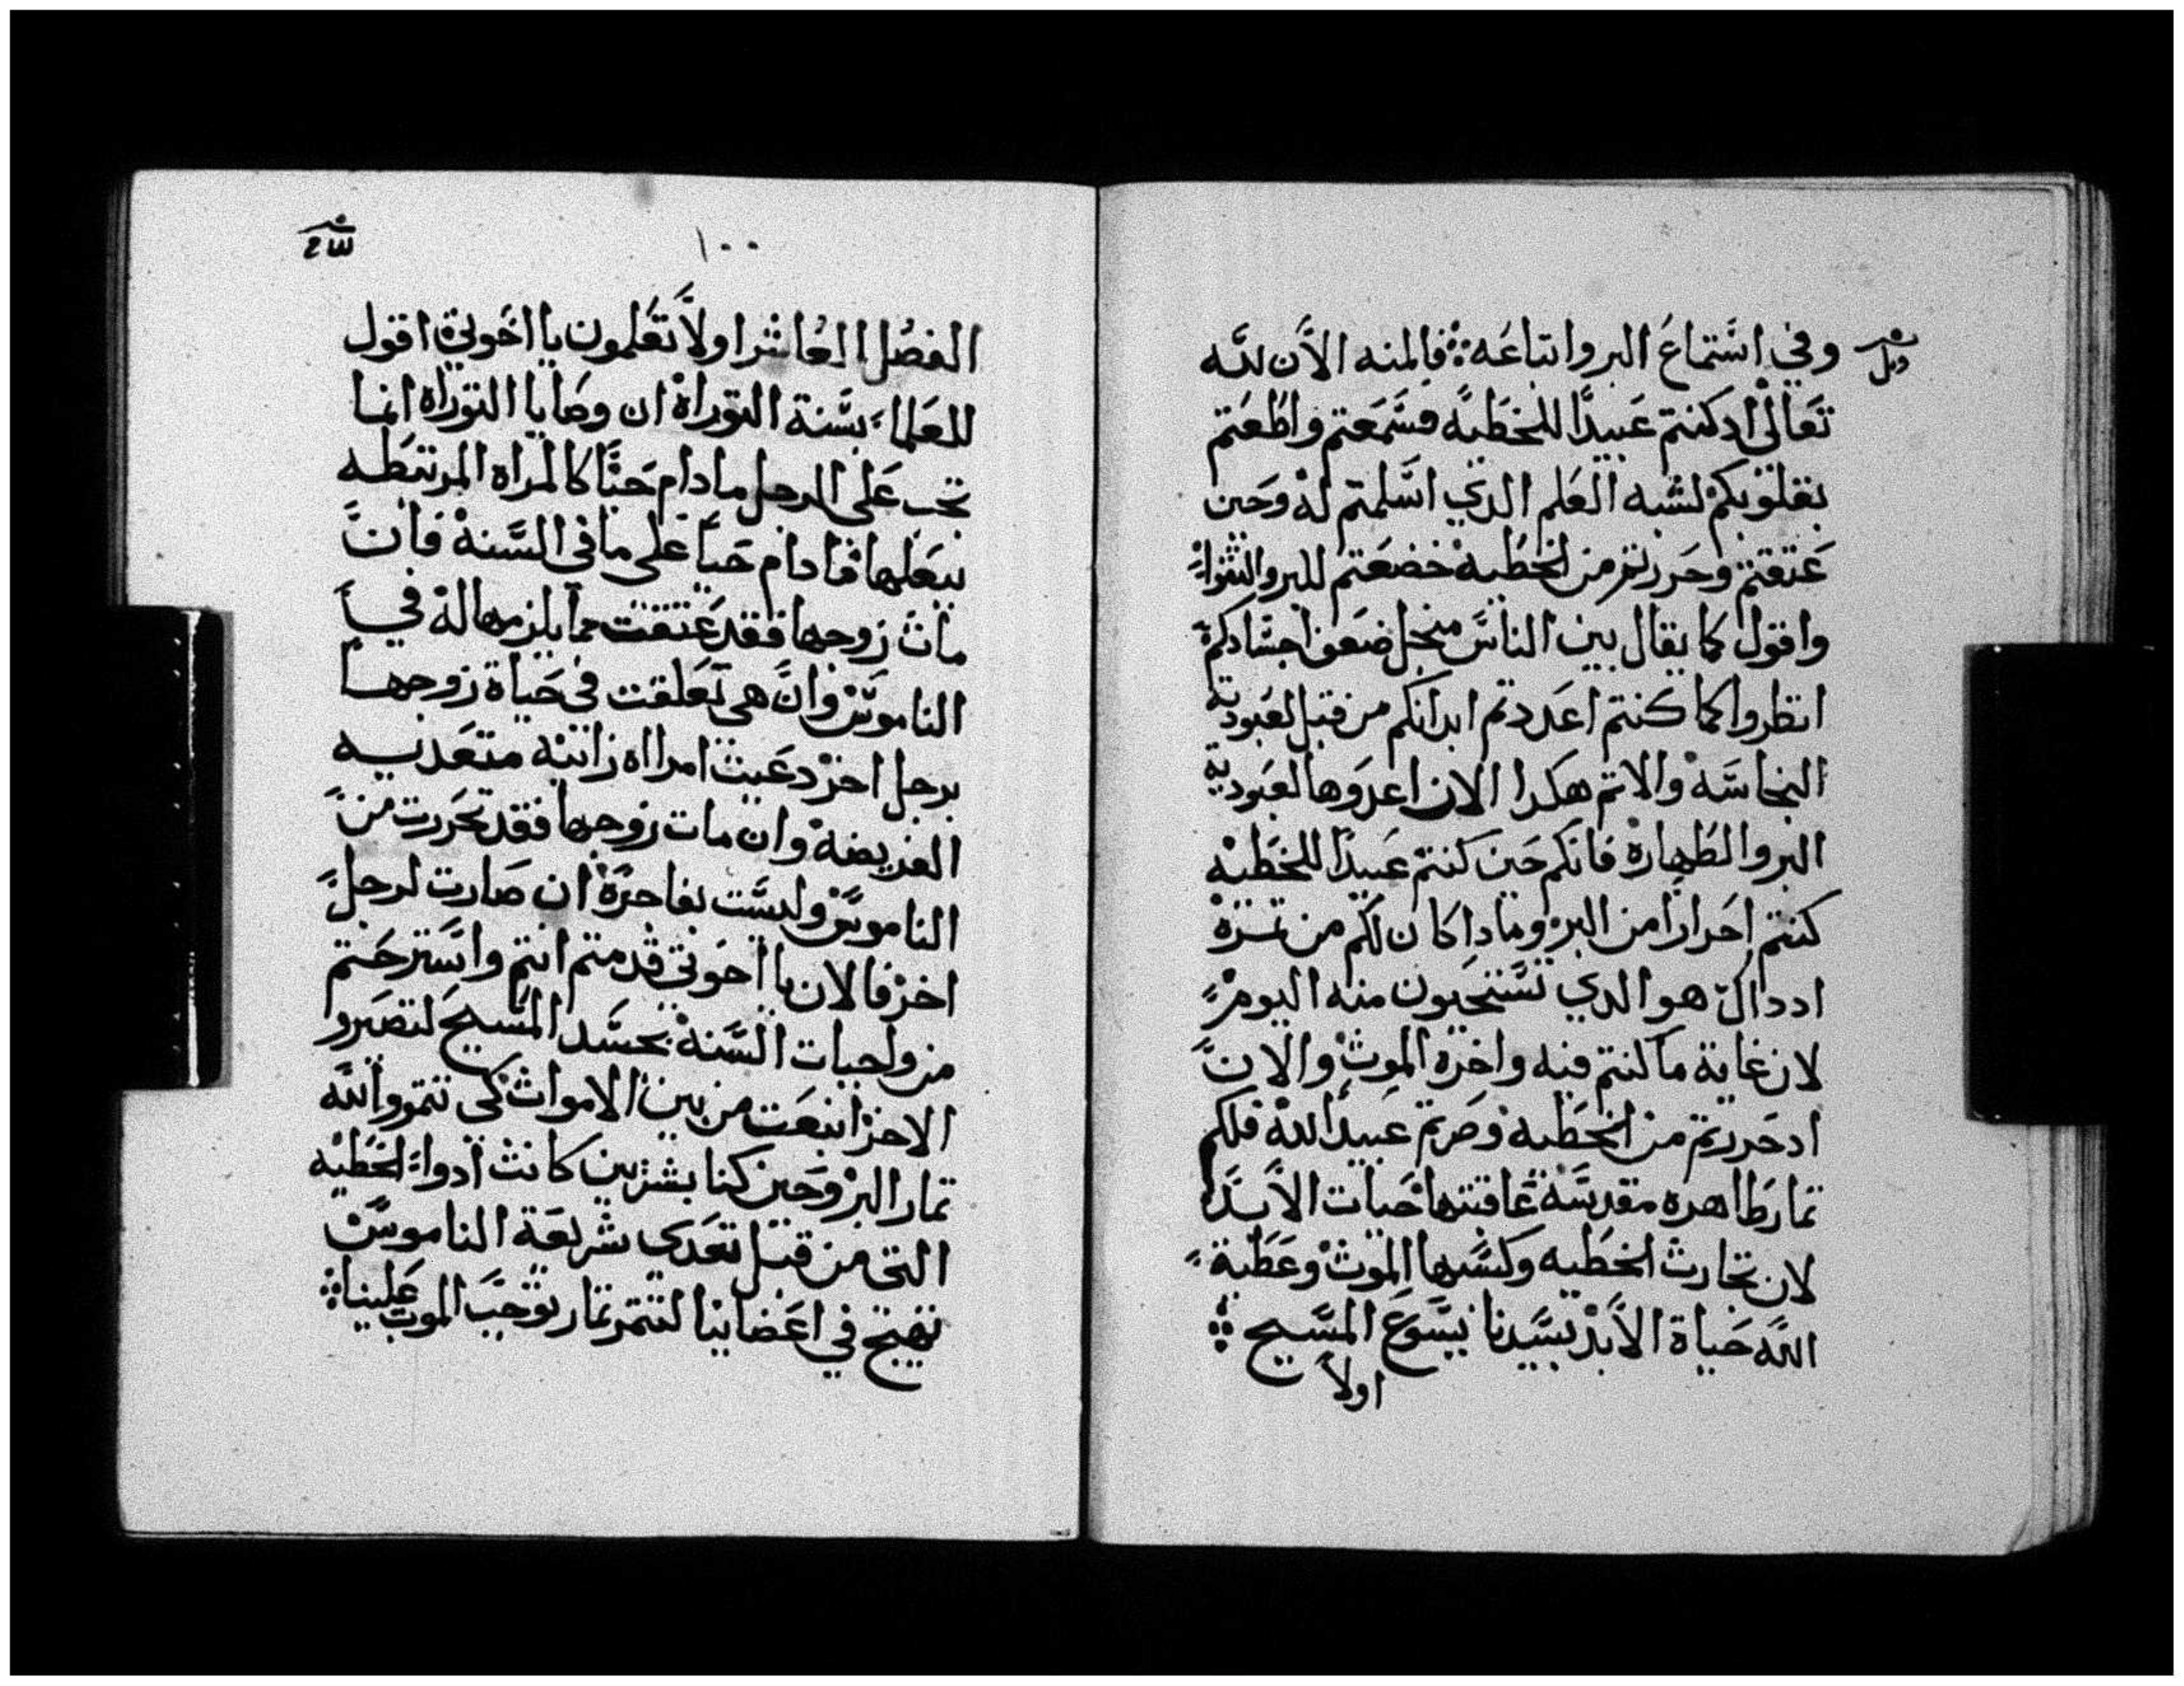 وفي استماع البر واتباعه فالمنه الان لله
تعالى اد كنتم عبيدا للخطيه فسمعتم واطعتم
بقلوبكم لشبه العلم الدي اسلمتم له وحين
عتقتم وحررتم من الخطيه خضعتم للبر والتقوا
واقول كما يقال بين الناس منجل ضعف اجسادكم
انظروا كما كنتم اعددتم ابدانكم من قبل لعبودية
النجاسه والاتم هكدا الان اعدوها لعبودية
البر والطهارة فانكم حين كنتم عبيدا للخطيه
كنتم احرارا من البر ومادا كان لكم من تمرة
اد داك هو الدي تستحيون منه اليوم
لان غاية ما كنتم فيه واخره الموت والان
اد حررتم من الخطيه وصرتم عبيدا لله فلكم
تمار طاهره مقدسه عاقبتها حيات الابد
لان تجارت الخطيه وكسبها الموت وعطية
الله حياة الابد بسيدنا يسوع المسيح
اولا
١٠٠
الفصل العاشر اولا تعلمون يا اخوتي اقول
للعلما بسنة التوراة ان وصايا التوراة انما
تجب على الرجل ما دام حيا كالمراه المرتبطه
ببعلها فما دام حيا على ما في السنة فان
مات زوجها فقد عتقت مما يلزمها له في
الناموس وان هي تعلقت في حياة زوجها
برجل اخر دعيت امراه زانيه متعديه
الفريضه وان مات زوجها فقد تحررت من
الناموس وليست بفاجرة ان صارت لرجل
اخر فالان يا اخوتي قد متم انتم واسترحتم
من واجبات السنة بجسد المسيح لتصيروا
الاخر انبعت من بين الاموات كي تتمروا لله
تمار البر وحين كنا بشريين كانت ادواء الخطيه
التي من قبل تعدى شريعة الناموس
تهيج في اعضاينا لنتمر تمار توجب الموت علينا